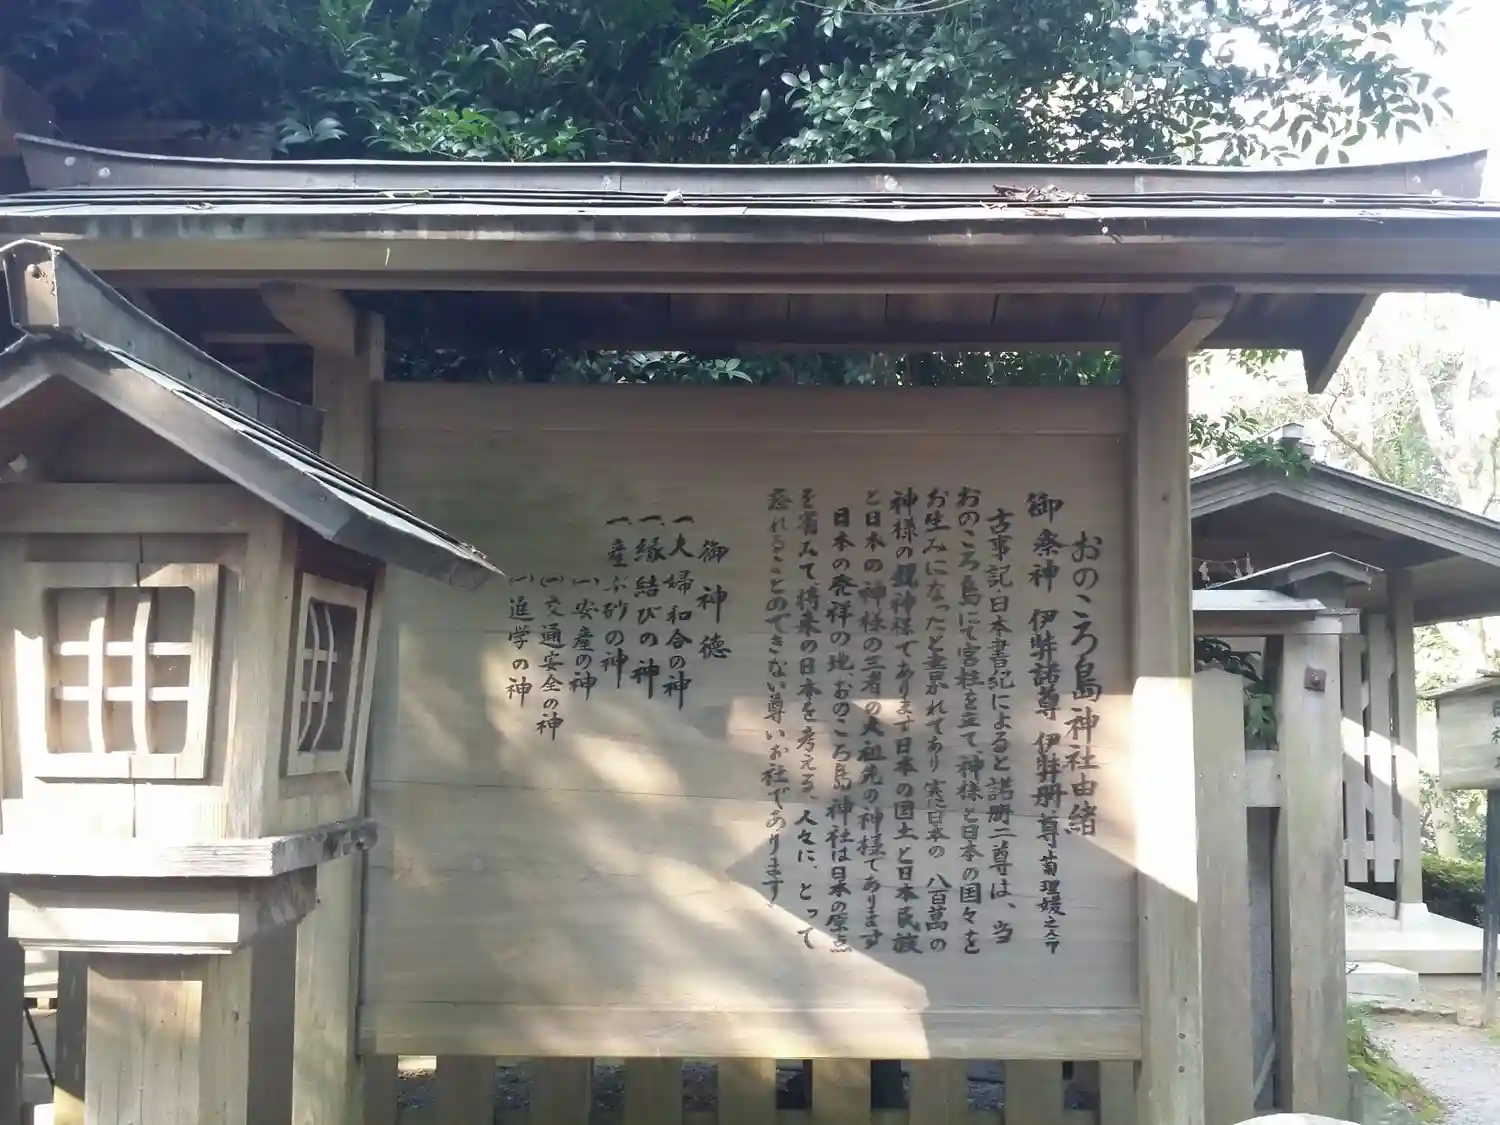 おのころ島神社由緒
御祭神 伊弉諾尊 伊弉冊尊 菊理媛之命
古事記・日本書紀によると諾冊二尊は、当
おのころ島にて宮柱を立て神様と日本の国々を
お生みになったと書かれてあり実に日本の八百萬の
神様の親神様であります日本の国土と日本民族
と日本の神様の三者の大祖元の神様であります
日本の発祥の地、おのころ島神社は日本の原点
を省みて将来の日本を考える、人々に、とって
忘れることのできない尊いお社であります。
御神徳
一、夫婦和合の神
一、縁結びの神
一、産ぶ砂の神
(一)安産の神
(一)交通安全の神
(一)進学の神